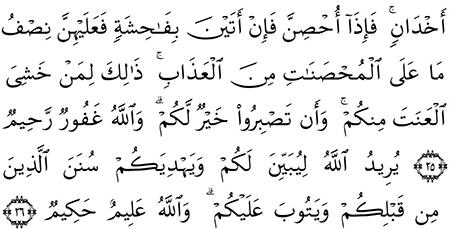 أَخْدَانٍۚ فَإِذَآ أُحْصِنَّ فَإِنْ أَتَيْنَ بِفَٰحِشَةٍ فَعَلَيْهِنَّ نِصْفُ
مَا عَلَى الْمُحْصَنَٰتِ مِنَ الْعَذَابِۚ ذَٰلِكَ لِمَنْ خَشِيَ
الْعَنَتَ مِنكُمْۚ وَأَن تَصْبِرُوا۟ خَيْرٌ لَّكُمْۗ وَاللَّهُ غَفُورٌ رَّحِيمٌ
۝٢٥ يُرِيدُ اللَّهُ لِيُبَيِّنَ لَكُمْ وَيَهْدِيَكُمْ سُنَنَ الَّذِينَ
مِن قَبْلِكُمْ وَيَتُوبَ عَلَيْكُمْۗ وَاللَّهُ عَلِيمٌ حَكِيمٌ ۝٢٦